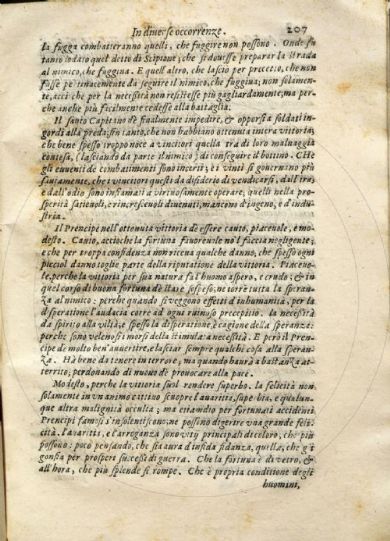 In diuerse occorrenze. 207
la fugga combatteranno quelli, che fuggire non possono. Onde fu
tanto lodato quel detto di Scipione; che si douesse preparar la strada
al nimico, che fuggiua. E quell'altro, che lasciò per precetto, che non
fusse pertinacemente da seguire il nimico, che fuggiua; non solamen-
te, acciò che per la necessità non resistesse più gagliardamente, ma per
che anche più facilmente cedesse alla battaglia.
Il sauio Capitano dè finalmente impedire, & opporsi a soldati in-
gordi alla preda; fin tanto, che non habbiano ottenuta intera vittoria;
che bene spesso troppo noce a vincitori quella tra di loro maluaggia
contesa, (lasciando da parte il nimico) di conseguire il bottino. CHe
gli euuenti de combattimenti sono incerti; e i vinti si gouernano più
sauiamente, che i vincitori questi da disiderio di vendicarsi, dall'ira,
e dall'odio sono infiamati a virtuosamente operare, quelli nella pro-
sperità satieuoli, e rincresceuoli diuenuti, mancono d'ingegno, e d'in-
dustria.
Il Prencipe nell'ottenuta vittoria dè essere cauto, piaceuole, e mo-
desto. Cauto, accioche la fortuna fauoreuole no'l faccia negligente;
e che per troppa confidenza non riceua qualche danno, che spesso ogni
picciol danno toglie parte della riputatione della vittoria. Piaceuo-
le, perche la vittoria per sua natura fa l'huomo aspero, e crudo: & in
quel corso di buona fortuna dè stare sospeso, ne torre tutta la speran-
za al nimico: perche quando si veggono effetti d'inhumanità, per la
disperatione l'audacia corre ad ogni ruinoso precepitio. la necessità
da spirito alla viltà, e spesso la disperatione, è cagione della speranze:
perche sono velenosi i morsi della stimulata necessità. E però il Pren-
cipe dè molto ben'auuertire, e lasciar sempre qualche cosa alla speran-
za. Ha bene da tenere in terrore, ma quando haurà a bastanza at-
territo; perdonando di nuouo dè prouocare alla pace.
Modesto, perche la vittoria suol rendere superbo. la felicità non
solamente in vn animo cattiuo scuopre l'auaritia, superbia, e qualun-
que altra malignità occulta; ma etiamdio per fortunati accidenti
Prencipi famosi s'insolentiscono; ne possono digerire vna grande feli-
cità. l'auaritia, e l'arroganza sono vitij principali di coloro, che più
possono: poco pensando, che sia aura d'infida fidanza, quella, che gli
gonfia per prosperi successi di guerra. Che la fortuna è di vetro, &
all'hora, che più splende si rompe. Che è propria conditione degli
huomini,